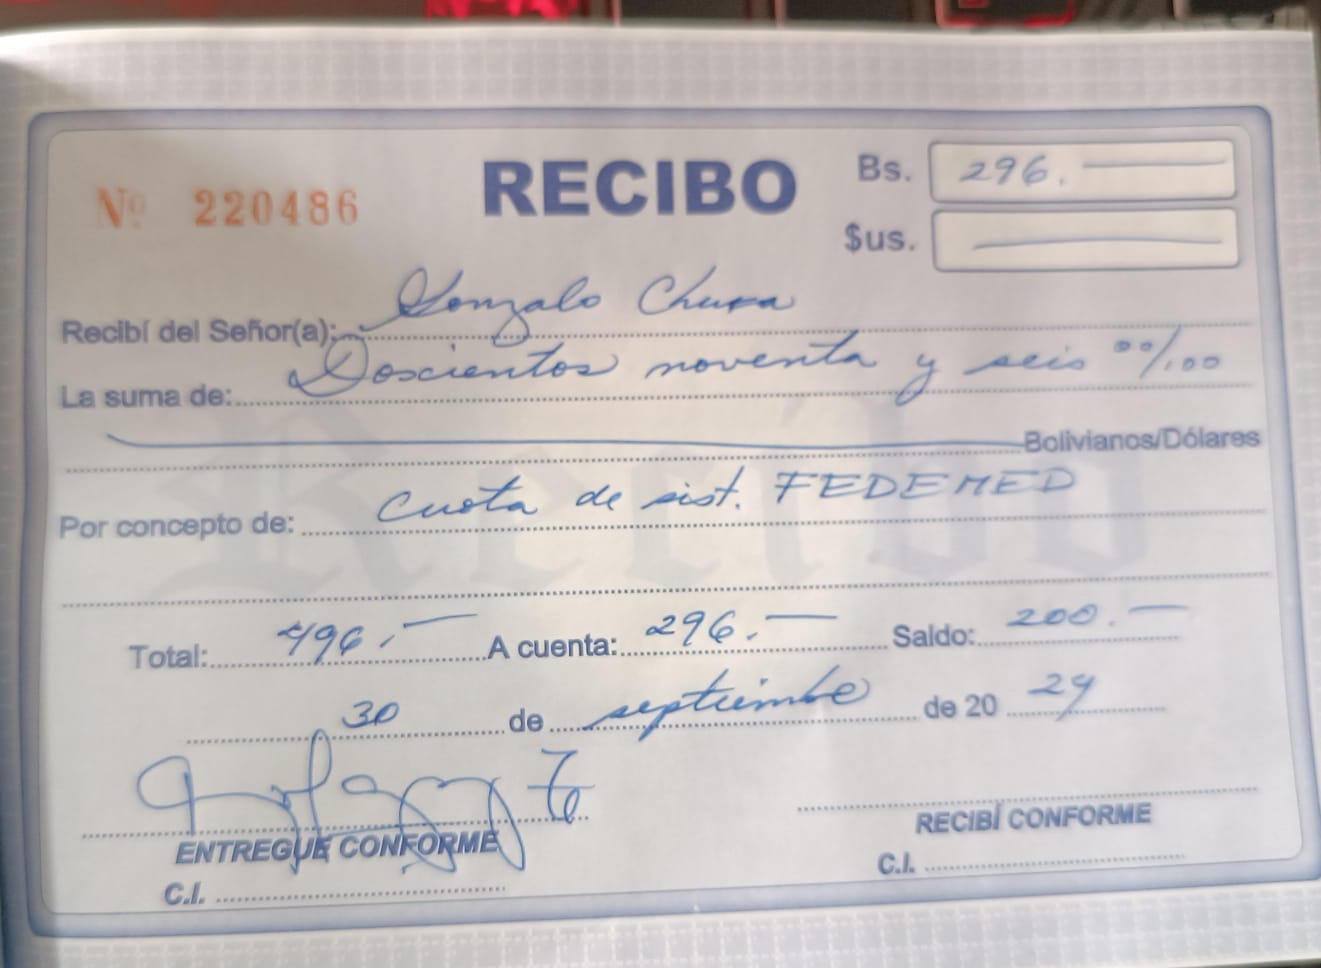 Nº 220486
RECIBO
Bs. 296.
$us.
Recibí del Señor(a): Gonzalo Chura
La suma de: Doscientos noventa y seis 00/100
Bolivianos/Dólares
Por concepto de: Cuota de sist. FEDEMED
Total: 496.- A cuenta: 296.- Saldo: 200.-
30 de septiembre de 20 24
ENTREGUE CONFORME
RECIBÍ CONFORME
C.I.
C.I.
Recibo